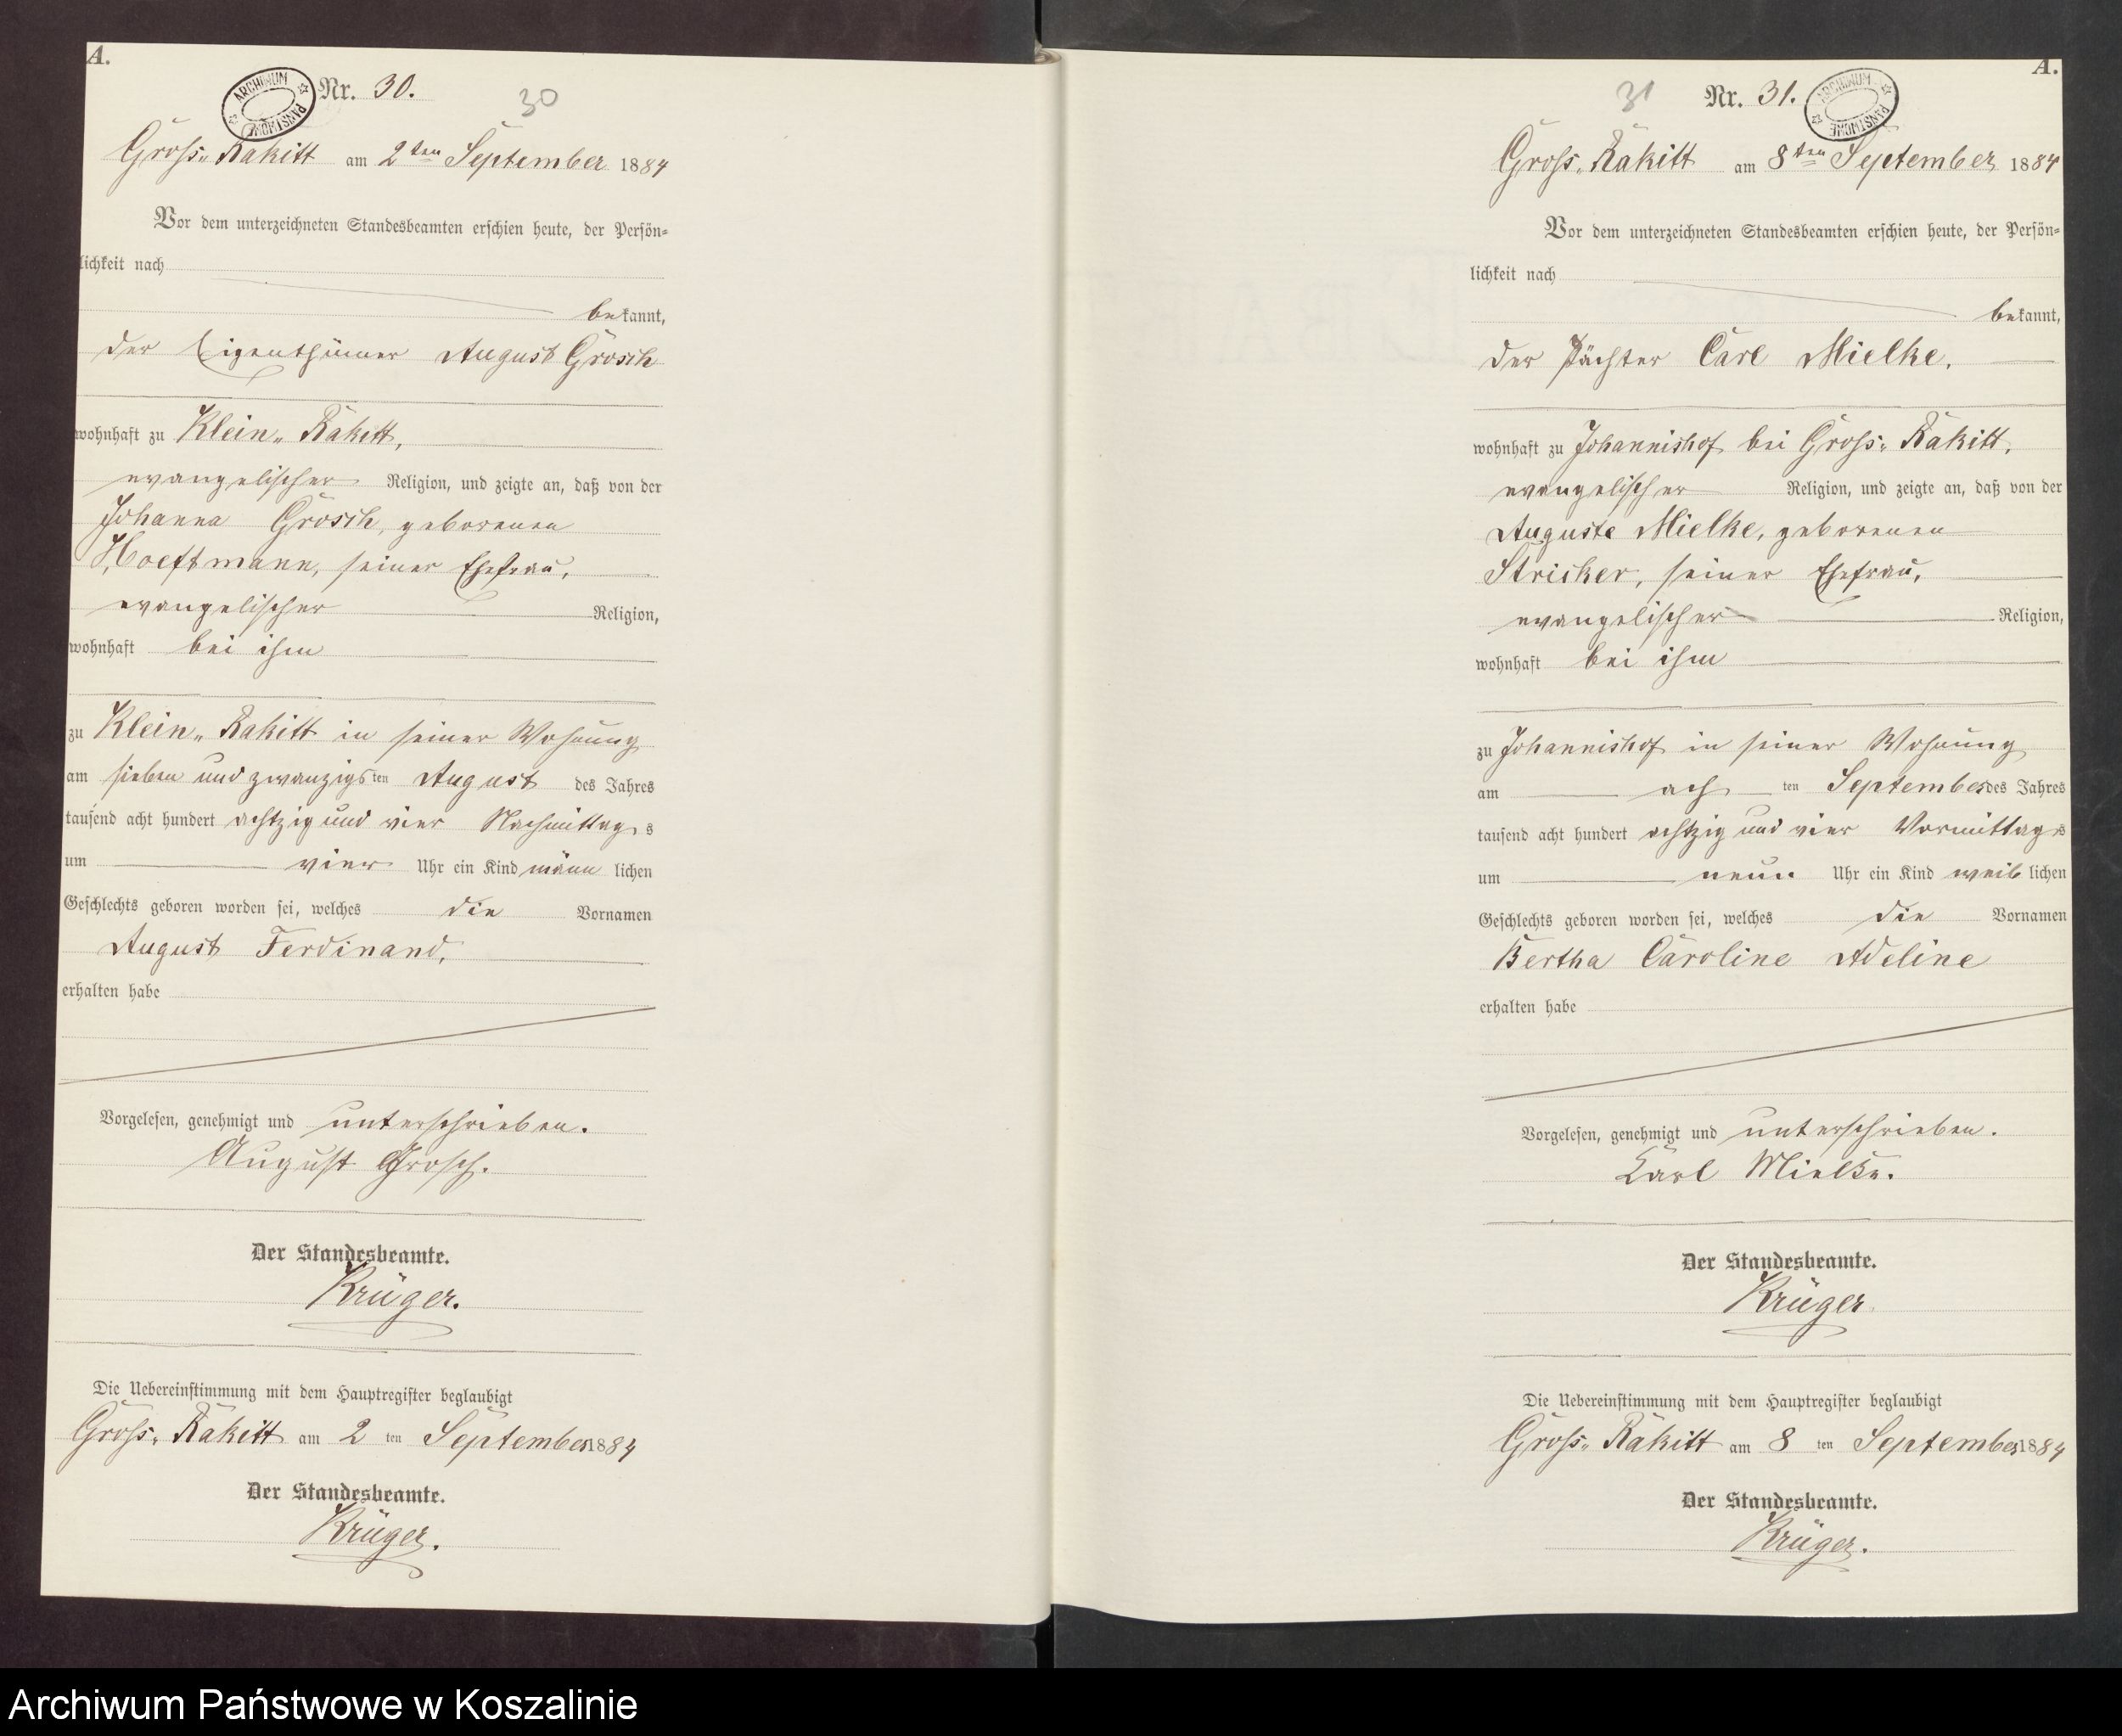 A.
ARCHIWUM PAŃSTWOWE
Nr. 30.
30
Gross-Rakitt am 2ten September 1884
Vor dem unterzeichneten Standesbeamten erschien heute, der Persön-
lichkeit nach
bekannt,
der Eigenthümer August Grosch
wohnhaft zu Klein-Rakitt,
evangelischer Religion, und zeigte an, daß von der
Johanna Grosch, geborenen
Hoeftmann, seiner Ehefrau,
evangelischer Religion,
wohnhaft bei ihm
zu Klein-Rakitt in seiner Wohnung
am sieben und zwanzigsten August des Jahres
tausend acht hundert achtzig und vier Nachmittags
um vier Uhr ein Kind männlichen
Geschlechts geboren worden sei, welches die Vornamen
August Ferdinand,
erhalten habe
Vorgelesen, genehmigt und unterschrieben.
August Grosch.
Der Standesbeamte.
Krüger.
Die Uebereinstimmung mit dem Hauptregister beglaubigt
Gross-Rakitt am 2ten September 1884
Der Standesbeamte.
Krüger.
A.
31
Nr. 31.
ARCHIWUM PAŃSTWOWE
Gross-Rakitt am 8ten September 1884
Vor dem unterzeichneten Standesbeamten erschien heute, der Persön-
lichkeit nach
bekannt,
der Pächter Carl Mielke,
wohnhaft zu Johannishof bei Gross-Rakitt,
evangelischer Religion, und zeigte an, daß von der
Auguste Mielke, geborenen
Stricker, seiner Ehefrau,
evangelischer Religion,
wohnhaft bei ihm
zu Johannishof in seiner Wohnung
am achten September des Jahres
tausend acht hundert achtzig und vier Vormittags
um neun Uhr ein Kind weiblichen
Geschlechts geboren worden sei, welches die Vornamen
Bertha Caroline Adeline
erhalten habe
Vorgelesen, genehmigt und unterschrieben.
Karl Mielke.
Der Standesbeamte.
Krüger
Die Uebereinstimmung mit dem Hauptregister beglaubigt
Gross-Rakitt am 8ten September 1884
Der Standesbeamte.
Krüger.
Archiwum Państwowe w Koszalinie